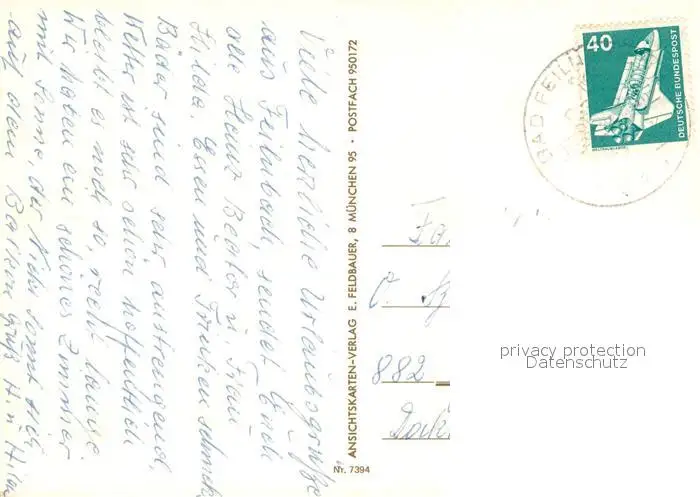 Viele herzliche Urlaubsgrüße
aus Feilnbach, sendet Euch
alle Heinz Beator u. Frau
Hilda. Essen und Trinken schmeckt
Bäder sind sehr anstrengend,
Wetter ist sehr schön hoffentlich
bleibt es noch so, recht lange.
Wir haben ein schönes Zimmer
mit Sonne, der sich
auf dem Balkon Gruß H. u. Hilda
ANSICHTSKARTEN-VERLAG E. FELDBAUER, 8 MÜNCHEN 95 · POSTFACH 950172
Nr. 7394
40
DEUTSCHE BUNDESPOST
WELTRAUMLABOR
BAD FEILN
Fa
882
privacy protection
Datenschutz